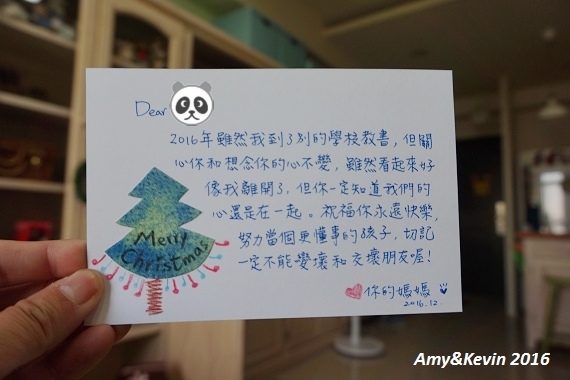 Dear
2016年雖然我到了別的學校教書，但關
心你和想念你的心不變，雖然看起來好
像我離開了，但你一定知道我們的
心還是在一起。祝福你永遠快樂，
努力當個更懂事的孩子，切記
一定不能變壞和交壞朋友喔！
你的媽媽
2016.12.
Merry
Christmas
Amy&Kevin 2016